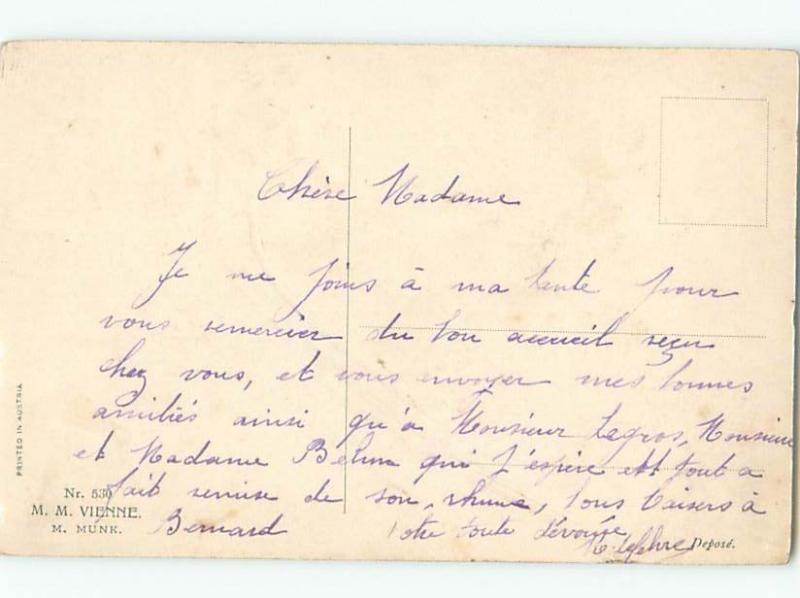 Chère Madame
Je me joins à ma tante pour
vous remercier du bon accueil reçu
chez vous, et vous envoyer mes bonnes
amitiés ainsi qu'à Monsieur Legros, Monsieur
et Madame Behm qui j'espère est tout a
fait remise de son rhume, bons baisers à
Bernard Votre toute dévouée
Lefebvre
PRINTED IN AUSTRIA
Nr. 530
M. M. VIENNE.
M. MUNK.
Deposé.